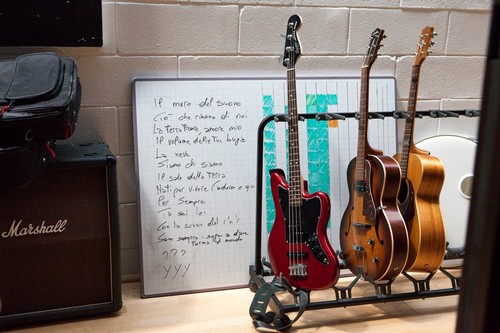 Il muro del suono
Ciò che rimane di noi
La terra trema, amore mio
Il volume delle tue bugie
La neve
Siamo chi siamo
Il sale della terra
Nati per vivere (adesso e qui
Per sempre
Tu sei lei
Con la scusa del r'n'r
Sono sempre i sogni a dare
forma al mondo
???
YYY
Marshall